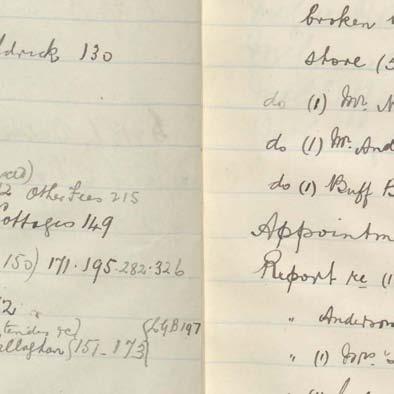 130
Other Fees 215
Cottages 149
150) 171.195.282.326
tender re
{LGB 197
allaghan {151-173
broken
store (
do (1) Mr. N
do (1) Mr. And
do (1) Buff B
Appointm
Report re (1
" Anderson
" (1) Mrs.